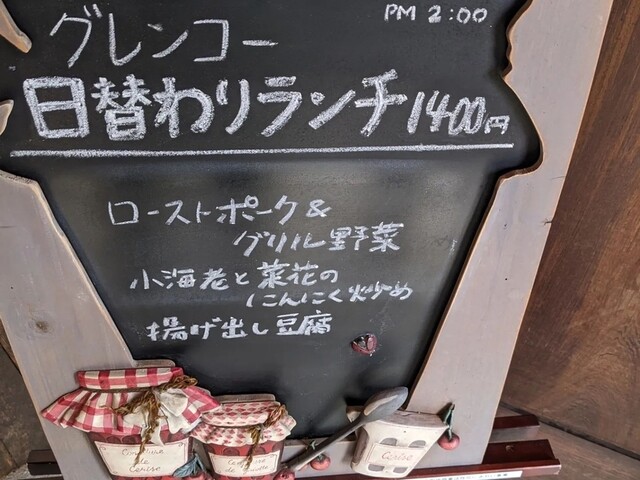 PM 2:00
グレンコー
日替わりランチ 1400円
ローストポーク &
グリル野菜
小海老と菜花の
にんにく炒め
揚げ出し豆腐
Confiture
de
Cerise
Confiture
Cerise